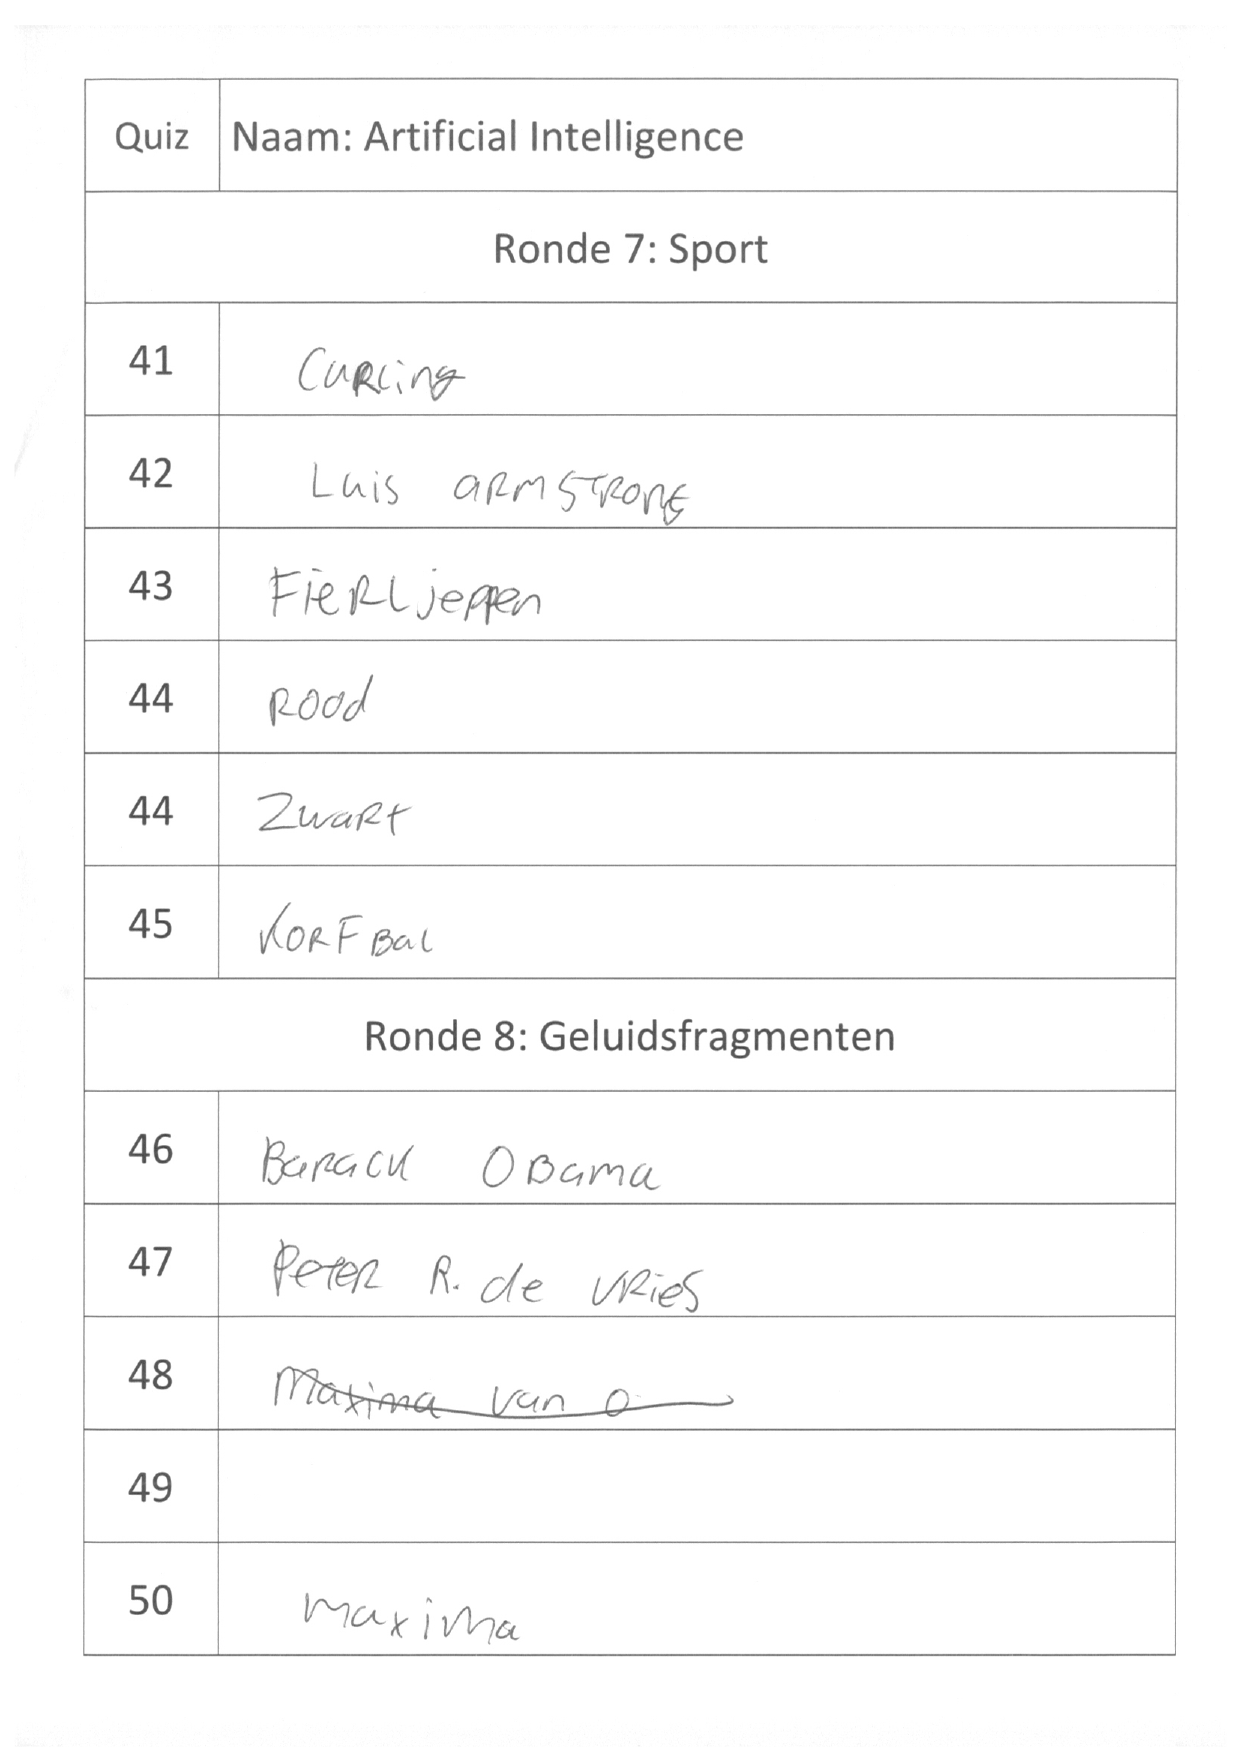 Quiz Naam: Artificial Intelligence
Ronde 7: Sport
41 Curling
42 Luis Armstrong
43 Fierljeppen
44 Rood
44 Zwart
45 Korfbal
Ronde 8: Geluidsfragmenten
46 Barack Obama
47 Peter R. de Vries
48 Maxima van O
49
50 Maxima